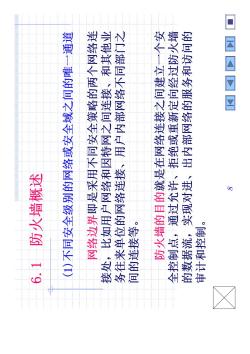 6.1 防火墙概述
(1)不同安全级别的网络或安全域之间的唯一通道
网络边界即是采用不同安全策略的两个网络连
接处，比如用户网络和因特网之间连接、和其他业
务往来单位的网络连接、用户内部网络不同部门之
间的连接等。
防火墙的目的就是在网络连接之间建立一个安
全控制点，通过允许、拒绝或重新定向经过防火墙
的数据流，实现对进、出内部网络的服务和访问的
审计和控制。
8